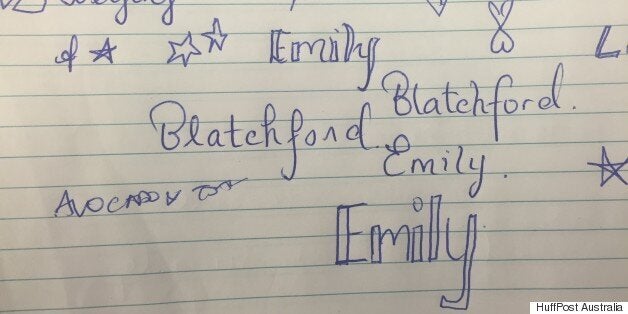 of
Emily
L
Blatchford.
Blatchford
Emily.
Avocado
Emily
HuffPost Australia